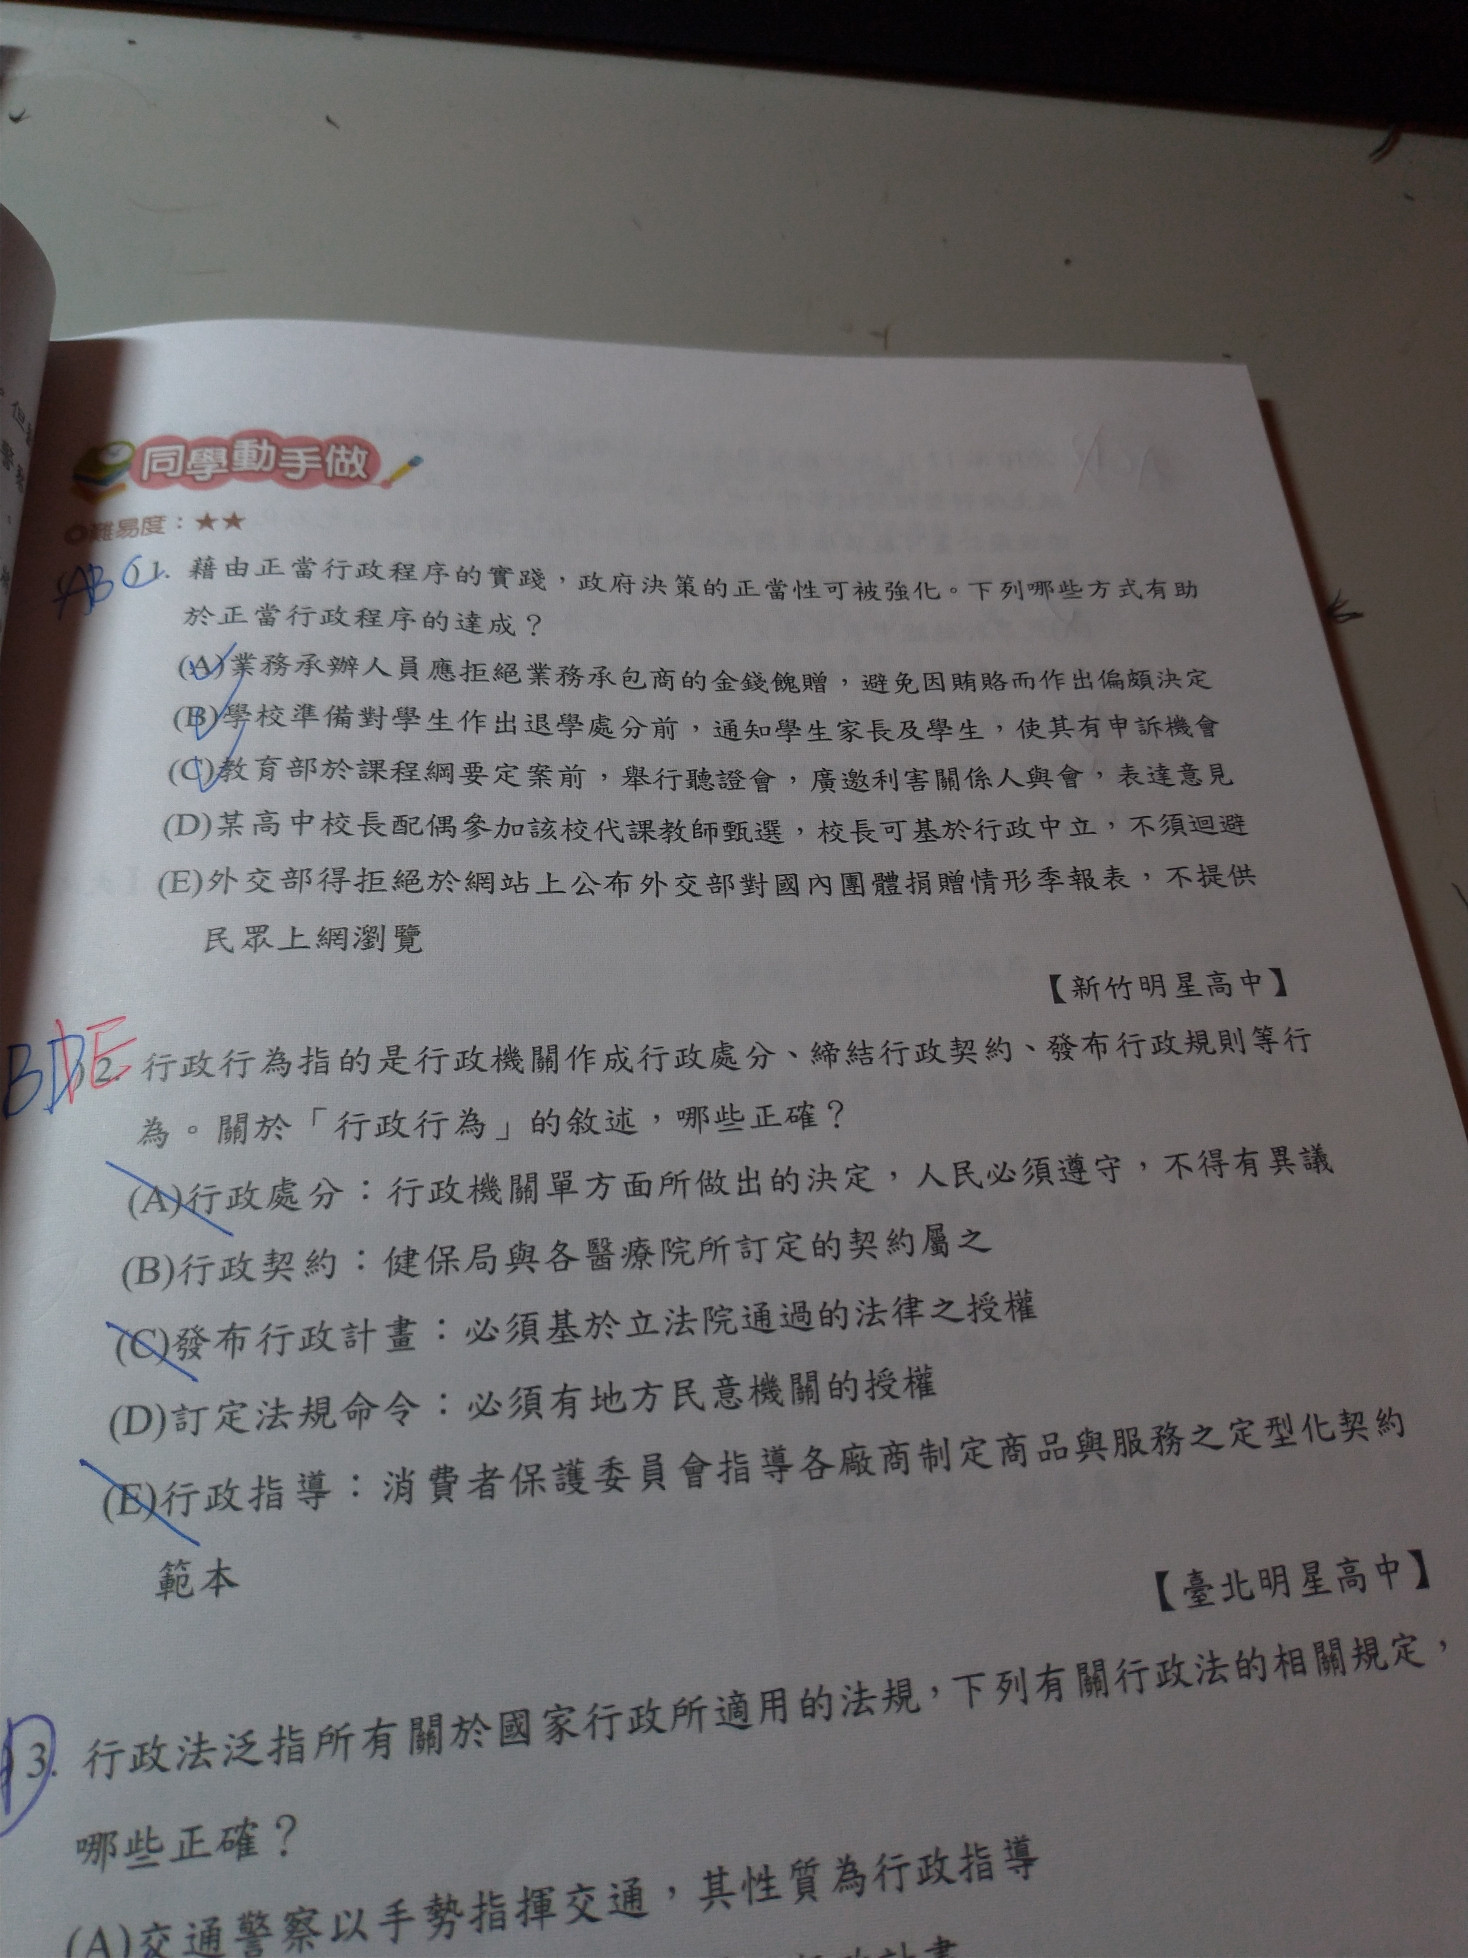 同學動手做
難易度：★★
ABC
)1. 藉由正當行政程序的實踐，政府決策的正當性可被強化。下列哪些方式有助
於正當行政程序的達成？
(A)業務承辦人員應拒絕業務承包商的金錢餽贈，避免因賄賂而作出偏頗決定
(B)學校準備對學生作出退學處分前，通知學生家長及學生，使其有申訴機會
(C)教育部於課程綱要定案前，舉行聽證會，廣邀利害關係人與會，表達意見
(D)某高中校長配偶參加該校代課教師甄選，校長可基於行政中立，不須迴避
(E)外交部得拒絕於網站上公布外交部對國內團體捐贈情形季報表，不提供
民眾上網瀏覽
【新竹明星高中】
BDE
)2. 行政行為指的是行政機關作成行政處分、締結行政契約、發布行政規則等行
為。關於「行政行為」的敘述，哪些正確？
(A)行政處分：行政機關單方面所做出的決定，人民必須遵守，不得有異議
(B)行政契約：健保局與各醫療院所訂定的契約屬之
(C)發布行政計畫：必須基於立法院通過的法律之授權
(D)訂定法規命令：必須有地方民意機關的授權
(E)行政指導：消費者保護委員會指導各廠商制定商品與服務之定型化契約
範本
【臺北明星高中】
D
)3. 行政法泛指所有關於國家行政所適用的法規，下列有關行政法的相關規定，
哪些正確？
(A)交通警察以手勢指揮交通，其性質為行政指導